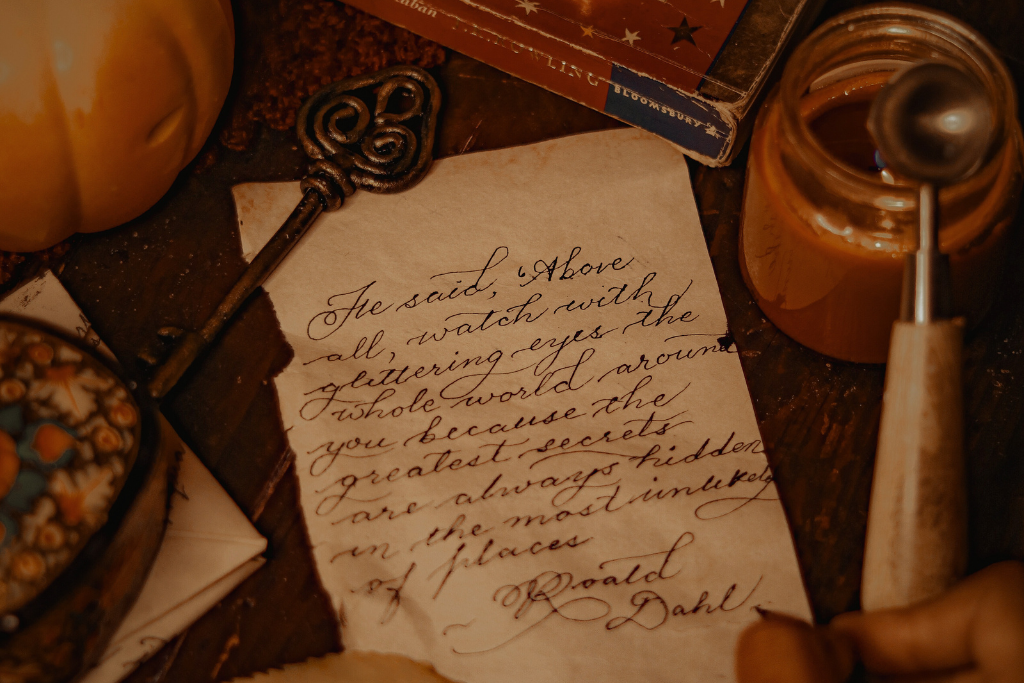 kaban
ROWLING
BLOOMSBURY
He said, "Above
all, watch with
glittering eyes the
whole world around
you because the
greatest secrets
are always hidden
in the most unlikely
of places
Roald
Dahl